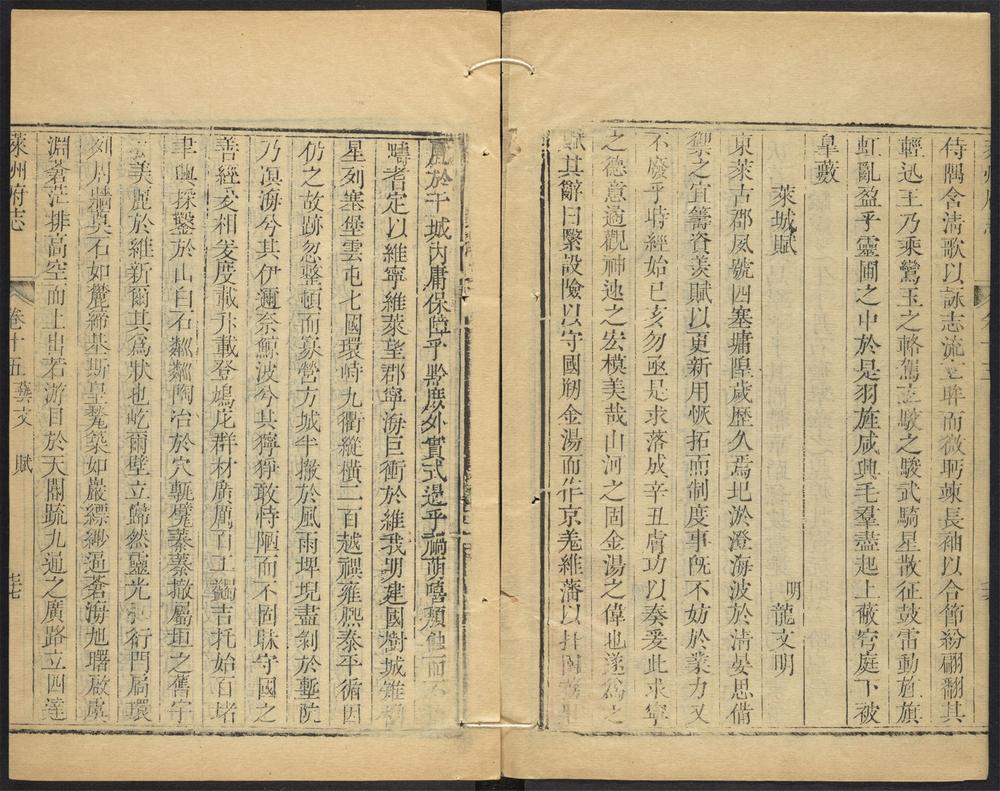 侍隅含清歌以詠志流立眸而微眄竦長袖以合節紛翩翻其
輕迅王乃乘鸞玉之輅駕之駿之駿武騎星散征鼓雷動旌旗
虹亂盈乎靈圃之中於是羽旌咸興毛羣盡起上蔽穹庭下被
皐藪
萊城賦
明龍文明
東萊古郡夙號四塞墉隍歲歴久焉圯淤澄海波於清晏思備
禦之宜籌咨羡賦以更新用恢拓而制度事旣不妨於業力又
不廢乎時經始已亥勿亟是求落成辛丑膚功以奏爰此求寧
之德意適觀神速之宏模美哉山河之固金湯之偉也遂爲之
賦其辭曰繄設險以守國剏金湯而作京羌維藩以扞
風於干城內庸保障乎黔度外實式遏乎禍萌嘻頽蝕而
疇耆定以維寧維萊望郡寧海巨衝於維我明建國樹城雉
星列塞堡雲屯七國環峙九衢縱橫二百越禩雍熙泰平循因
仍之故跡忽整頓而纂營方城半撤於風雨埤堄盡剝於塹阬
乃溟海兮其伊邇奈鯨波兮其獰猙敢恃陋而不固昧守國之
善經爰相爰度載升載登鳩庀群材廣厲百工蠲吉托始百堵
聿興採鑿於山白石粼粼陶冶於穴甎甓蓁蓁撤屬垣之舊宇
美麗於維新爾其爲狀也屹爾壁立歸然靈光衍門扃環
刻周牆奠石如麓締基斯皇甃築如巖縹緲逼蒼海旭曙啟虞
淵蒼茫排高空而上出若游目於天闕䟽九逵之廣路立四達
萊州府志
卷十五
藝文
賦